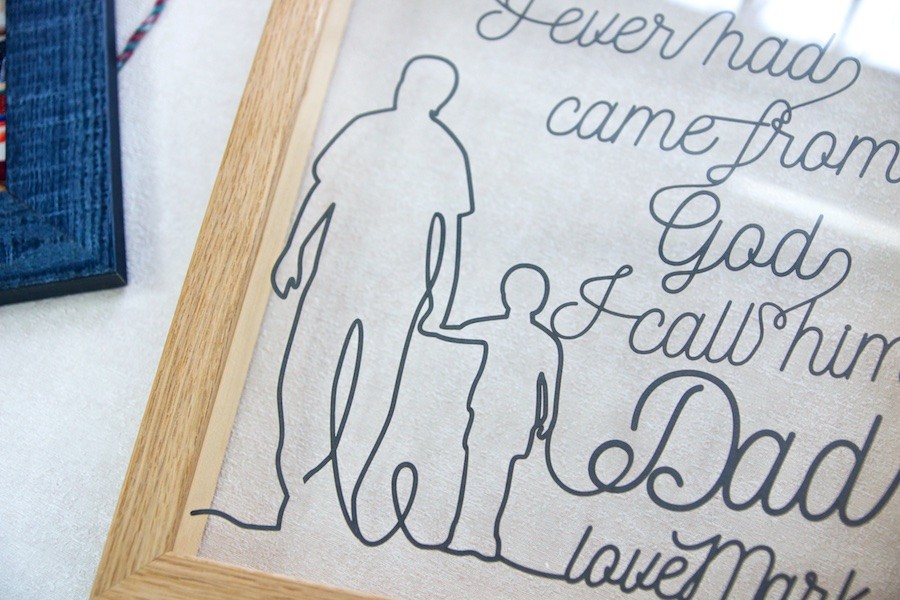 I ever had
came from
God
I call him
Dad
love Mark